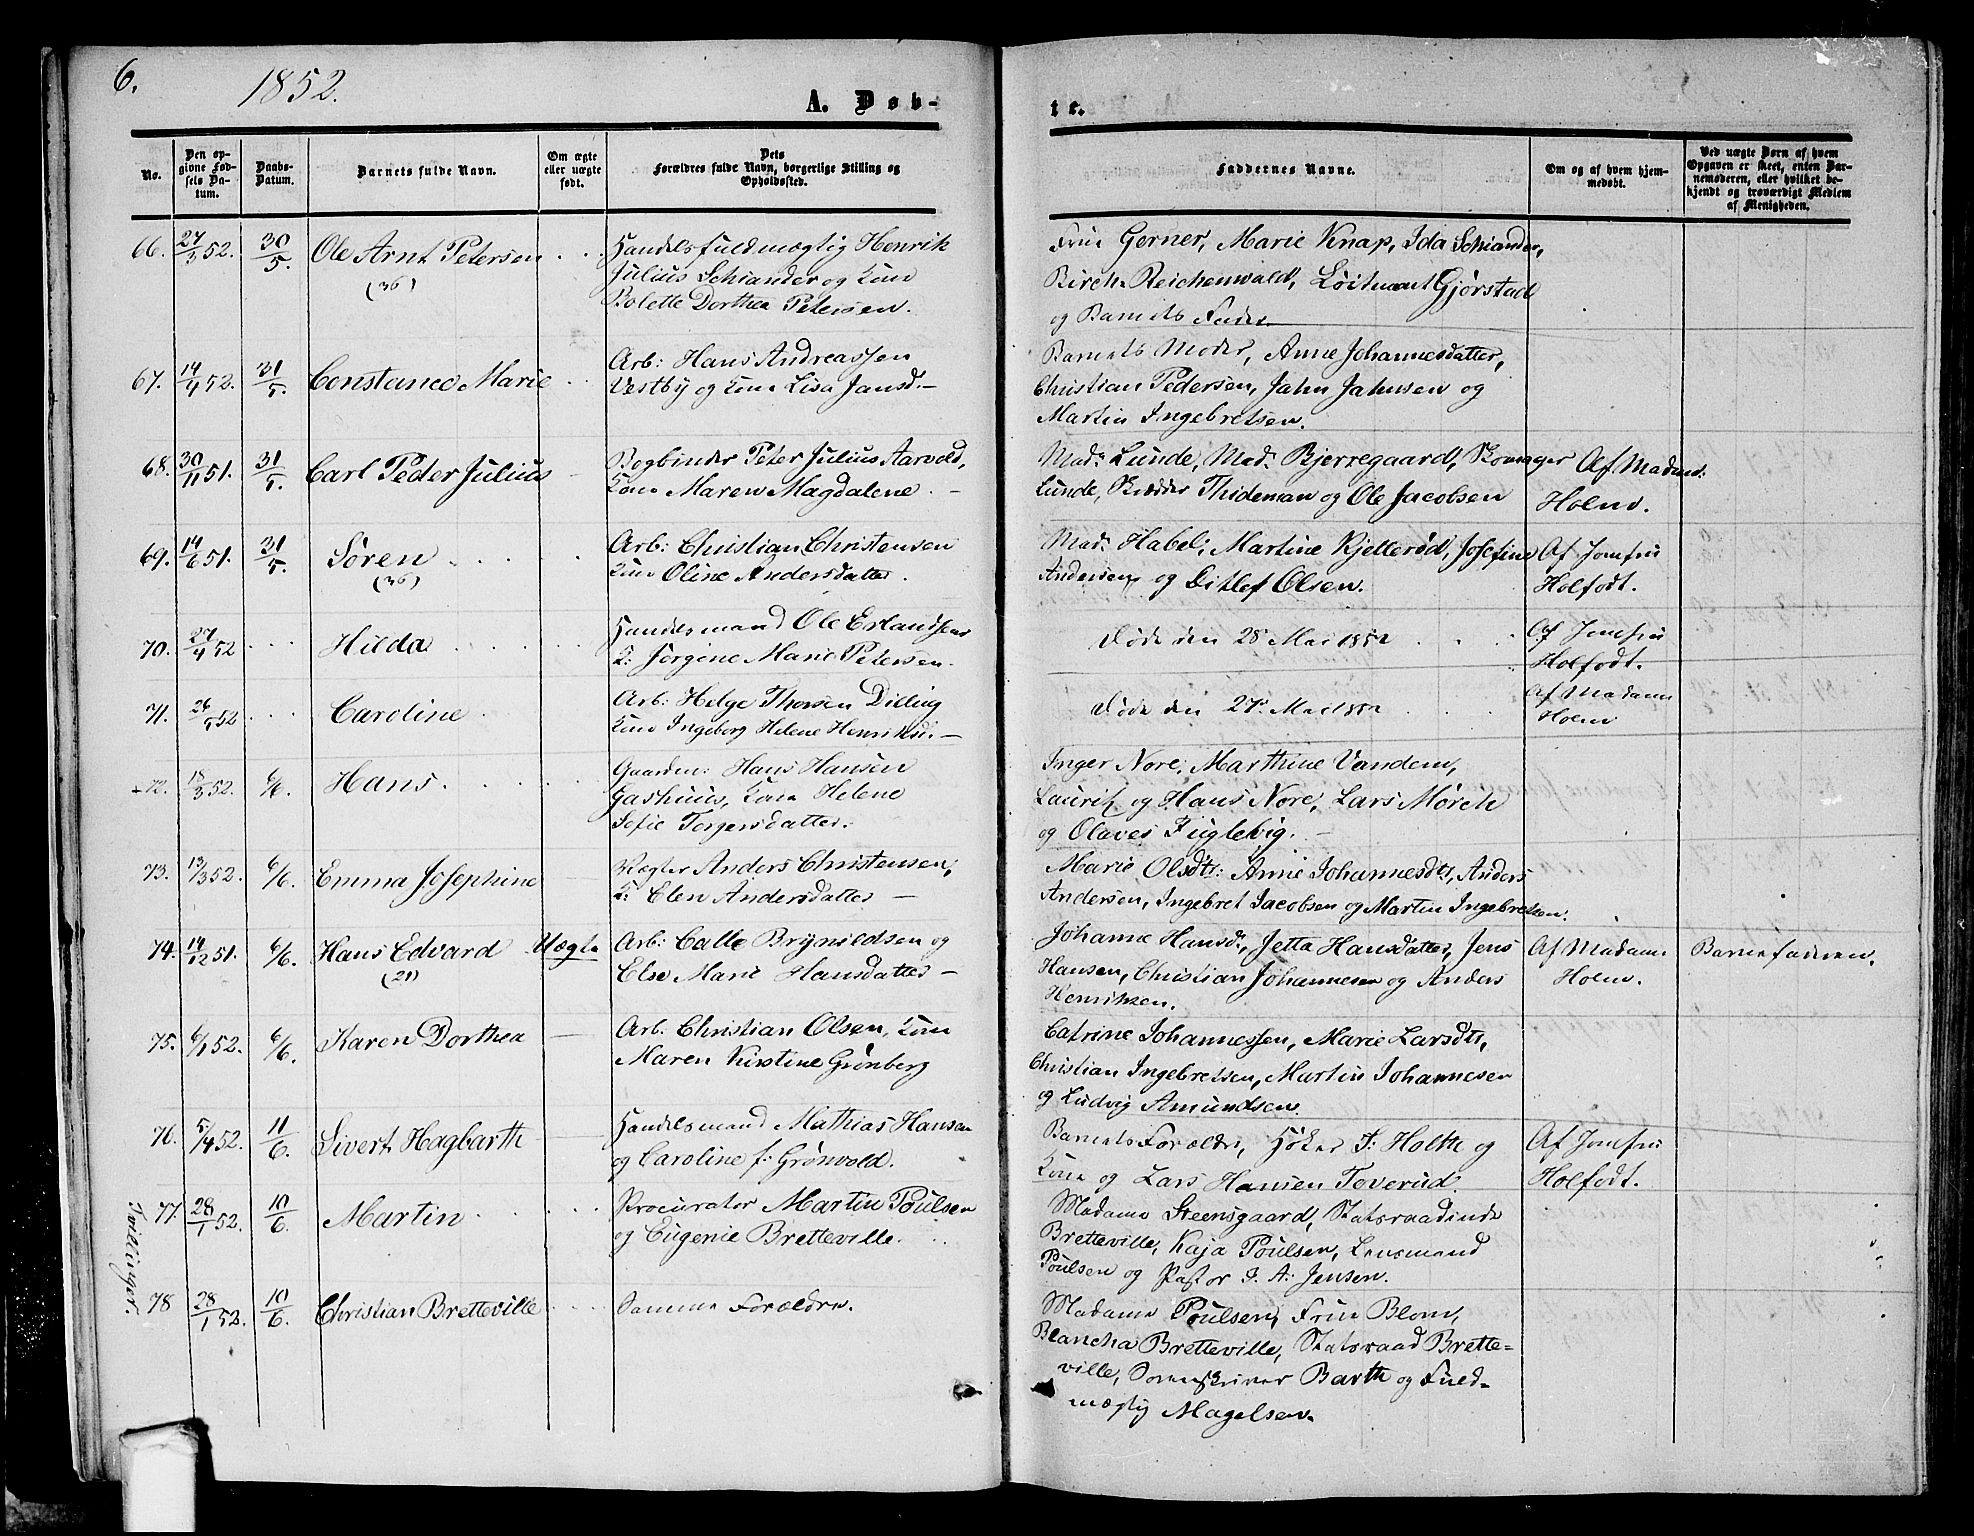 6.
1852.
A. Døb-
te.
No.
Den op-
givne Fød-
sels Da-
tum.
Daabs-
Datum.
Barnets fulde Navn.
Om ægte
eller uægte
født.
Dets
Forældres fulde Navn, borgerlige Stilling og
Opholdssted.
Faddernes Navne.
Om og af hvem hjem-
medøbt.
Ved uægte Børn af hvem
Opgaven er skeet, enten Bar-
nemoderen, eller hvilket be-
kjendt og troværdigt Medlem
af Menigheden.
66. 27/3 52. 30/5. Ole Arnt Petersen
(36)
Handelsfuldmægtig Henrik
Julius Schiander og Kone
Bolette Dorthea Petersen.
Frue Gerner, Marie Knap, Ida Schiander,
Birch-Reichenwald, Løitnant Gjørstad
og Barnets Fader
67. 14/4 52. 31/5. Constance Marie
Arb: Hans Andreassen
Vestby og Kone Lisa Jansd.
Barnets Moder, Anne Johannesdatter,
Christian Pedersen, Jahn Jahnsen og
Martin Ingebretsen.
68. 30/11 51. 31/5. Carl Peder Julius
Bogbinder Peter Julius Aarvold,
Kone Maren Magdalene.
Mad. Lunde, Mad. Bjerregaard,
Lunde, Skrædder Thideman og Ole Jacobsen
Af Madam
Holm.
69. 14/6 51. 31/5. Søren
(36)
Arb: Christian Christensen
Kone Oline Andersdatter.
Mad. Habel, Martine Kjellerød, Josefine
Andersen og Ditlef Olsen.
Af Jomfru
Holfodt.
70. 27/4 52 Hilda
Handelsmand Ole Erlandsen
K: Jørgine Marie Petersen.
Døde den 28 Mai 1852
Af Jomfru
Holfodt.
71. 26/5 52 Caroline
Arb: Helge Thorsen Dilling
Kone Ingeborg Helene Henriksd.
Døde den 27. Mai 1852
Af Madam
Holm
72. 18/3 52. 6/6. Hans
Gaardm: Hans Hansen
Gashuus, Kone Helene
Sofie Torgersdatter.
Inger Nore, Marthine Vandem,
Lauritz og Hans Nore, Lars Mørch
og Olaves Fuglevig.
73. 13/3 52. 6/6. Emma Josephine
Vægter Anders Christensen,
K: Elen Andersdatter
Marie Olsdtr: Anne Johannesdtr, Anders
Andersen, Ingebret Jacobsen og Martin Ingebretsen.
74. 14/12 51. 6/6. Hans Edvard Uægte
(21)
Arb: Calle Brynildsen og
Else Marie Hansdatter
Johanne Hansd., Jetta Hansdatter, Jens
Hansen, Christian Johannesen og Anders
Henriksen.
Af Madam
Holm.
Barnefaderen.
75. 6/1 52. 6/6. Karen Dorthea
Arb: Christian Olsen, Kone
Maren Kirstine Grønberg
Catrine Johannessen, Marie Larsdtr,
Christian Ingebretsen, Martin Johannesen
og Ludvig Amundsen.
76. 5/4 52. 11/6. Sivert Hagbarth
Handelsmand Mathias Hansen
og Caroline f: Grønvold.
Barnets Forældre, Høker S: Holth og
Kone og Lars Hansen Toverud.
Af Jomfru
Holfodt.
Tvillinger.
77. 28/1 52. 10/6. Martin
Procurator Martin Poulsen
og Eugenie Bretteville.
Madame Steensgaard, Statsraadinde
Bretteville, Kaja Poulsen, Lensmand
Poulsen og Pastor S. A. Jensen.
78 28/1 52. 10/6. Christian Bretteville
Samme Forældre.
Madame Poulsen, Frue Blom,
Blancha Bretteville, Statsraad Brette-
ville, Sorenskriver Barth og Fuld-
mægtig Magelsen.